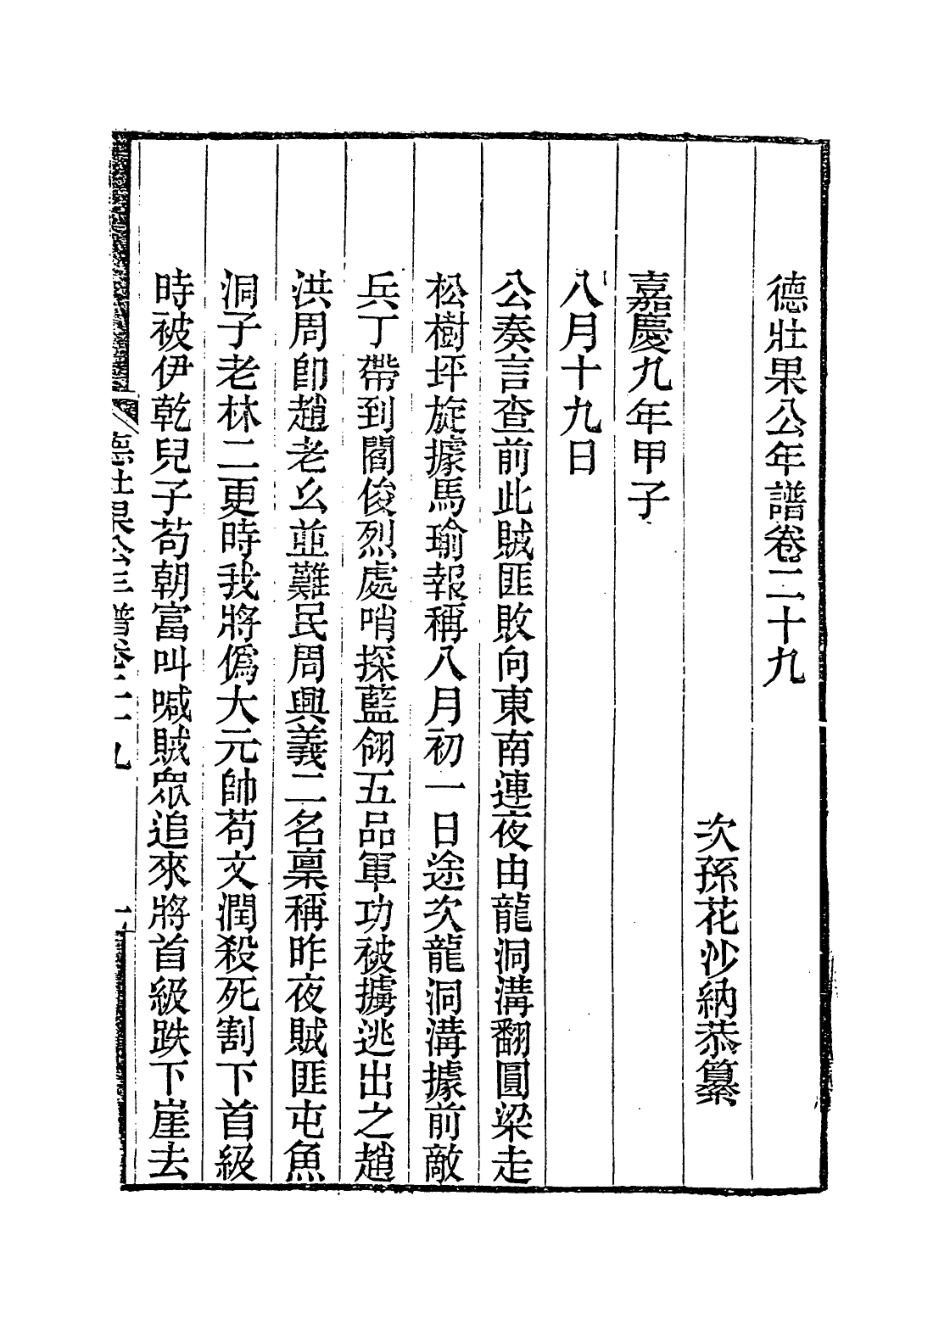 德壯果公年譜卷二十九
次孫花沙納恭纂
嘉慶九年甲子
八月十九日
公奏言查前此賊匪敗向東南連夜由龍洞溝翻圓梁走
松樹坪旋據馬瑜報稱八月初一日途次龍洞溝據前敵
兵丁帶到閻俊烈處哨探藍翎五品軍功被擄逃出之趙
洪周卽趙老么並難民周興義二名稟稱昨夜賊匪屯魚
洞子老林二更時我將僞大元帥苟文潤殺死割下首級
時被伊乾兒子苟朝富叫喊賊眾追來將首級跌下崖去
德壯果公年譜卷二十九
一